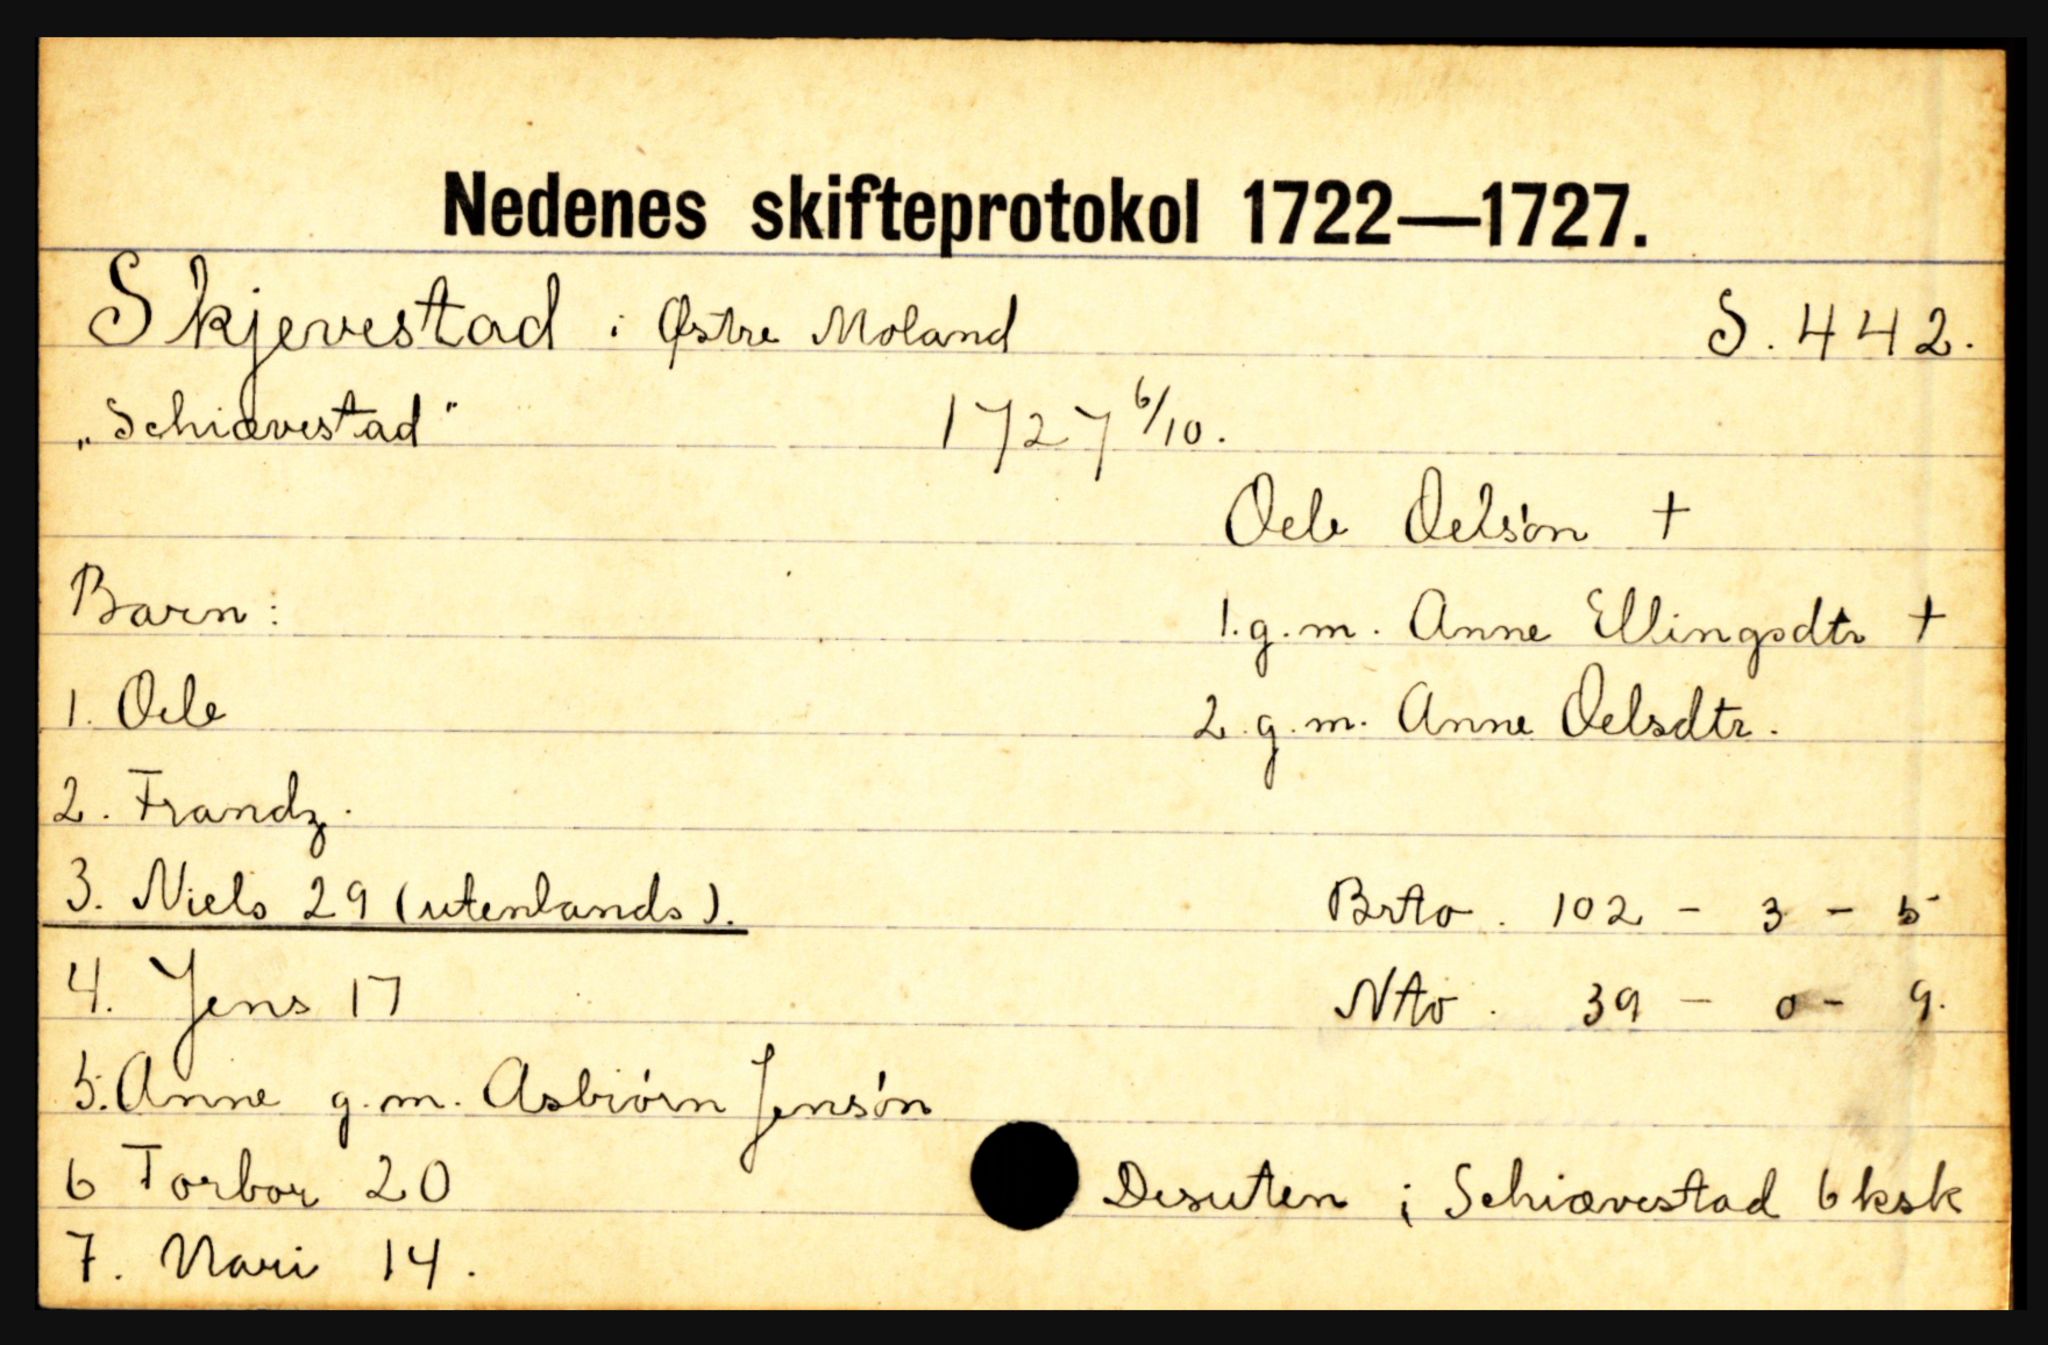 Nedenes skifteprotokol 1722—1727.
Skjevestad i Østre Moland S. 442.
„Schiævestad" 1727 6/10.
Oele Oelsön +
Barn: 1. g. m. Anne Ellingsdtr +
1. Oele 2. g. m. Anne Oelsdtr.
2. Frandz.
3. Niels 29 (utenlands). Brto. 102 - 3 - 5
4. Jens 17 Nto. 39 - 0 - 9.
5. Anne g. m. Asbiörn Jensön
6 Torbor 20 Desuten i Schiævestad 6 ksk
7. Mari 14.